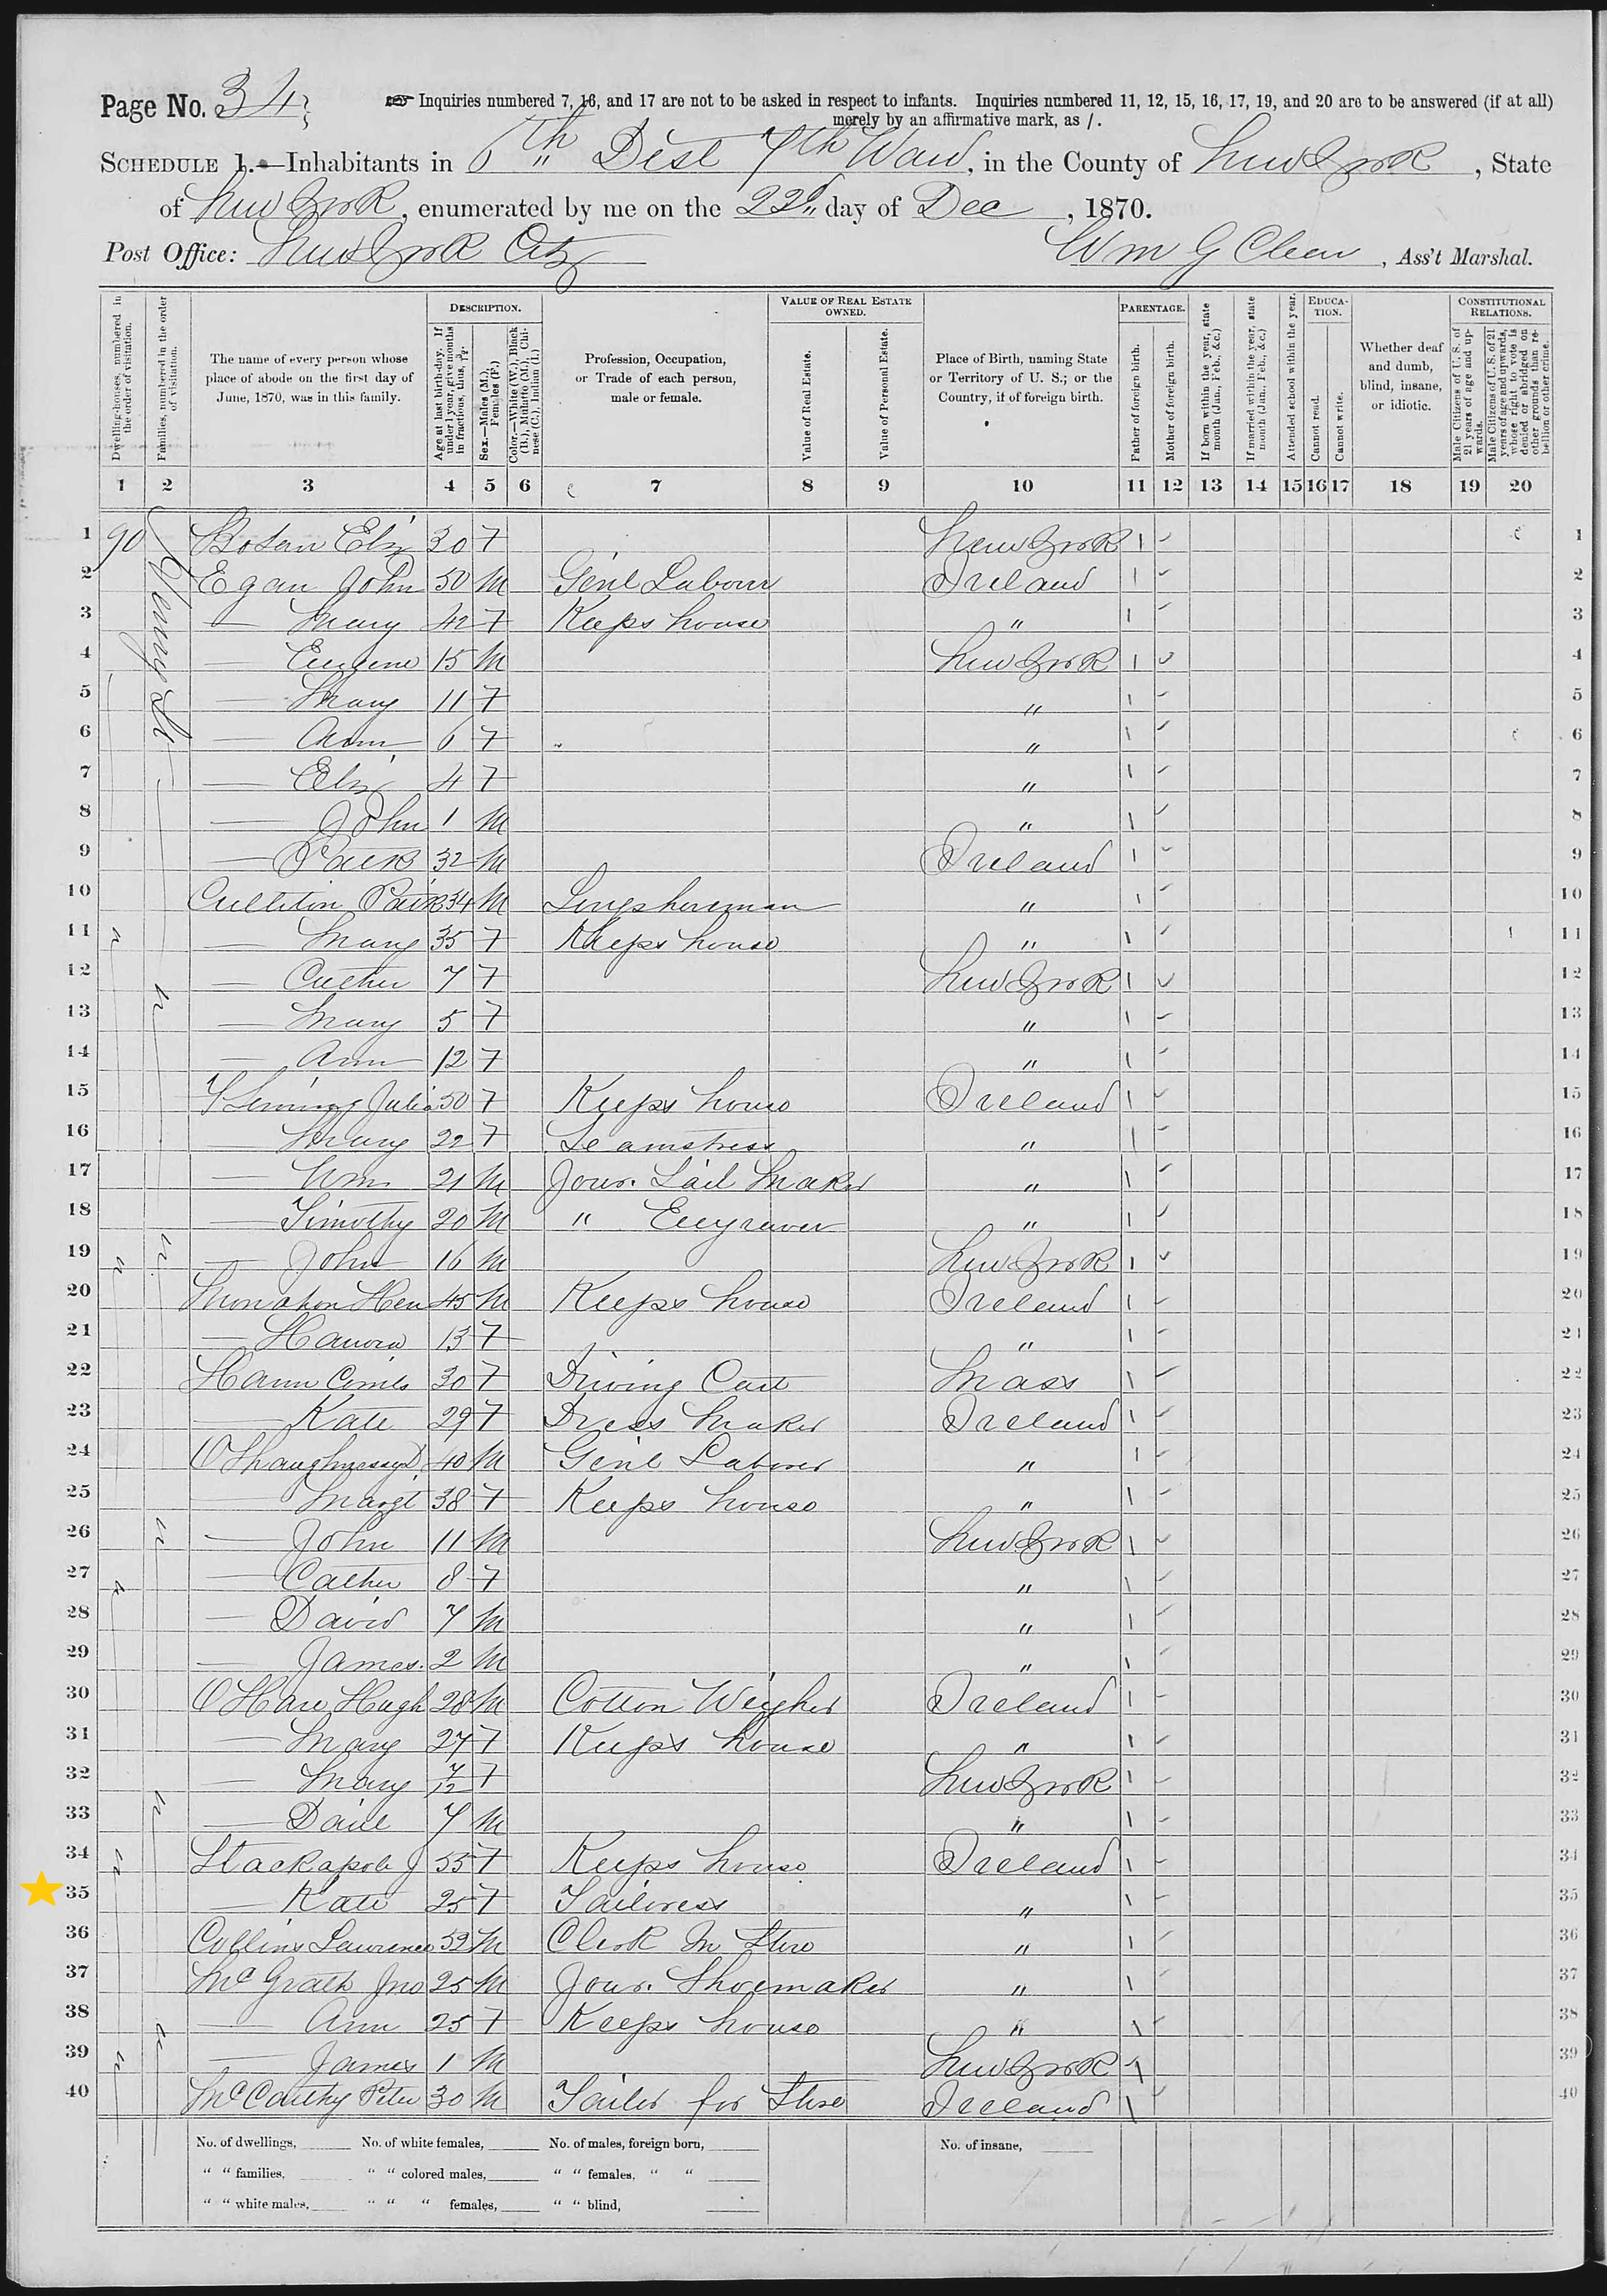 Page No. 34
Inquiries numbered 7, 16, and 17 are not to be asked in respect to infants. Inquiries numbered 11, 12, 15, 16, 17, 19, and 20 are to be answered (if at all)
merely by an affirmative mark, as /.
SCHEDULE 1.—Inhabitants in 6th Dist 7th Ward, in the County of New York, State
of New York, enumerated by me on the 22d day of Dec, 1870.
Post Office: New York City Wm G Clear, Ass't Marshal.
Dwelling-houses, numbered in the order of visitation.
Families, numbered in the order of visitation.
The name of every person whose place of abode on the first day of June, 1870, was in this family.
DESCRIPTION.
Age at last birth-day. If under 1 year, give months in fractions, thus, 3/12.
Sex.—Males (M.), Females (F.)
Color.—White (W.), Black (B.), Mulatto (M.), Chinese (C.), Indian (I.)
Profession, Occupation, or Trade of each person, male or female.
VALUE OF REAL ESTATE OWNED.
Value of Real Estate.
Value of Personal Estate.
Place of Birth, naming State or Territory of U. S.; or the Country, if of foreign birth.
PARENTAGE.
Father of foreign birth.
Mother of foreign birth.
If born within the year, state month (Jan., Feb., &c.)
If married within the year, state month (Jan., Feb., &c.)
Attended school within the year.
EDUCATION.
Cannot read.
Cannot write.
Whether deaf and dumb, blind, insane, or idiotic.
CONSTITUTIONAL RELATIONS.
Male Citizens of U. S. of 21 years of age and upwards.
Male Citizens of U. S. of 21 years of age and upwards, whose right to vote is denied or abridged on other grounds than rebellion or other crime.
1 2 3 4 5 6 7 8 9 10 11 12 13 14 15 16 17 18 19 20
1 90 Eliz 30 F New York 1
2 Egan John 50 M Genl Labour Ireland 2
3 — Mary 42 F Keeps house " 3
4 — Eugene 15 M New York 4
5 — Mary 11 F " 5
6 — Ann 6 F " 6
7 — Eliz 4 F " 7
8 — John 1 M " 8
9 — Patk 32 M Ireland 9
10 Culliton Patk 34 M Longshoreman " 10
11 " — Mary 35 F Keeps house " 11
12 — Cather 7 F New York 12
13 — Mary 5 F " 13
14 — Ann 12 F " 14
15 Fleming Julia 50 F Keeps house Ireland 15
16 — Mary 22 F Seamstress " 16
17 — Wm 21 M Jour. Sail Maker " 17
18 — Timothy 20 M " Engraver " 18
19 " — John 16 M New York 19
20 Monahon Hen 45 M Keeps house Ireland 20
21 — Hanora 13 F " 21
22 Hann 30 F Driving Cart Mass 22
23 — Kate 29 F Dress Maker Ireland 23
24 OShaughnessy D 40 M Genl Laborer " 24
25 — Margt 38 F Keeps house " 25
26 — John 11 M New York 26
27 " — Cather 8 F " 27
28 — David 7 M " 28
29 — James. 2 M " 29
30 OHare Hugh 28 M Cotton Weigher Ireland 30
31 — Mary 27 F Keeps house " 31
32 — Mary 7/12 F New York 32
33 — Danl 7 M " 33
34 " Stackapole J 55 F Keeps house Ireland 34
35 — Kate 25 F Tailoress " 35
36 Collins Lawrence 52 M Clerk In Store " 36
37 McGrath Jno 25 M Jour. Shoemaker " 37
38 — Ann 25 F Keeps house " 38
39 " — James 1 M New York 39
40 McCarthy Peter 30 M Tailor for Store Ireland 40
Henry St
No. of dwellings, No. of white females, No. of males, foreign born, No. of insane,
" " families, " " colored males, " " females, " "
" " white males, " " " females, " " blind,